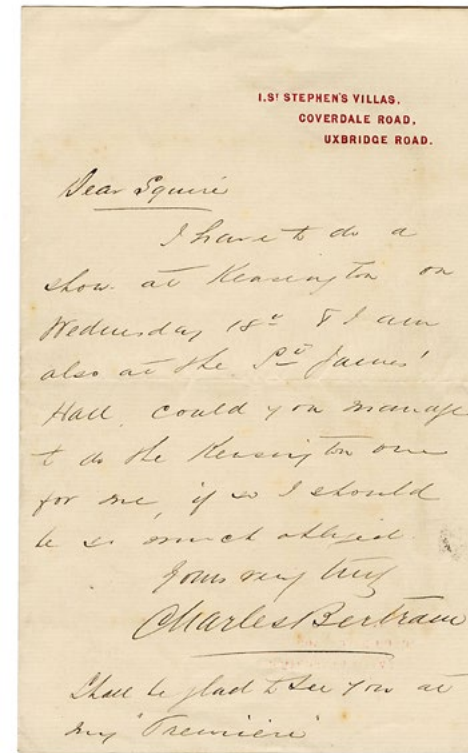 1.ST STEPHEN'S VILLAS,
COVERDALE ROAD,
UXBRIDGE ROAD.
Dear Squire
I have to do a
show at Kensington on
Wednesday 18th & I am
also at the St James'
Hall could you manage
to do the Kensington one
for me, if so I should
be so much obliged.
Yours very truly
Charles Bertram
Shall be glad to see you at
my "Première"